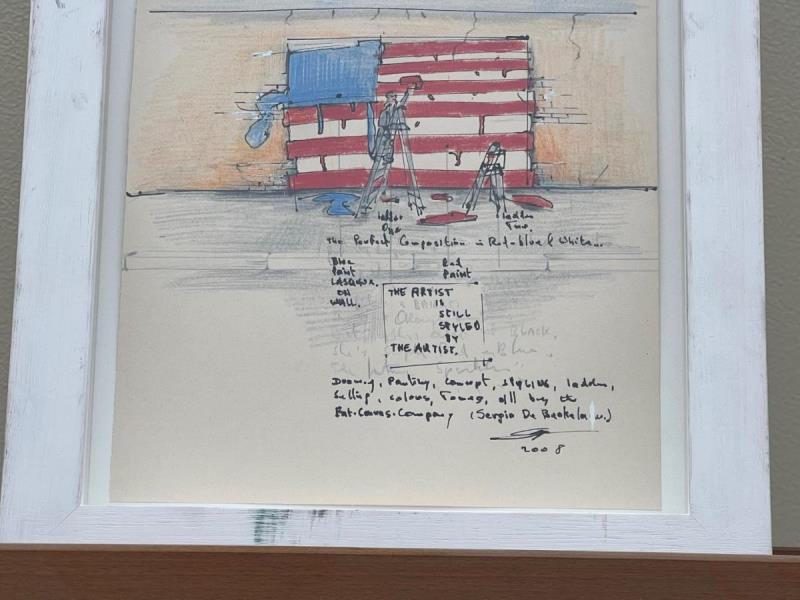 ladder ladder
One Two.
The Perfect Composition in Red-blue & White...
Blue Red
Paint Paint
ON
WALL.
THE ARTIST
IS
STILL
STYLED
BY
THE ARTIST.
BLACK.
She's in Blue
Drawing, Painting, Concept, STYLING, ladders,
Setting, colours, Tones, All by the
Company (Sergio De
2008